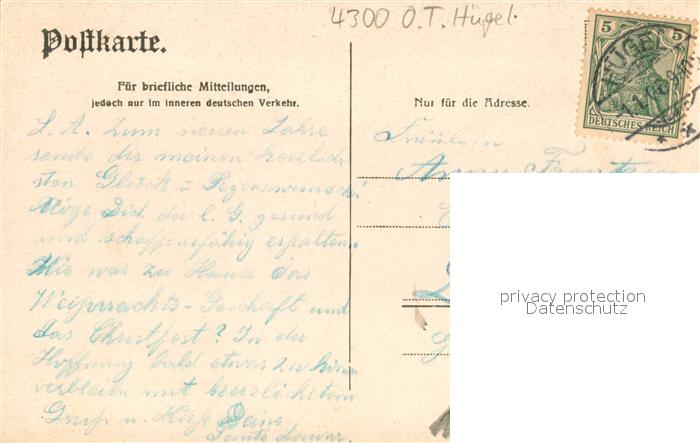 4300 O.T. Hügel.
Postkarte.
Für briefliche Mitteilungen,
jedoch nur im inneren deutschen Verkehr.
Nur für die Adresse.
5 5
DEUTSCHES REICH
HÜGEL
L. A. Zum neuen Jahre
sende dir meinen herzlich-
sten Glück u. Segenswunsch!
Möge Dich der l. G. gesund
und schaffensfähig erhalten.
Wie war zu Hause das
Weihnachts-Geschäft und
das Christfest? In der
Hoffnung bald etwas zu hören
verbleibe mit herzlichstem
Gruß u. Kuß Deine
Tante
Fräulein
Anny
privacy protection
Datenschutz